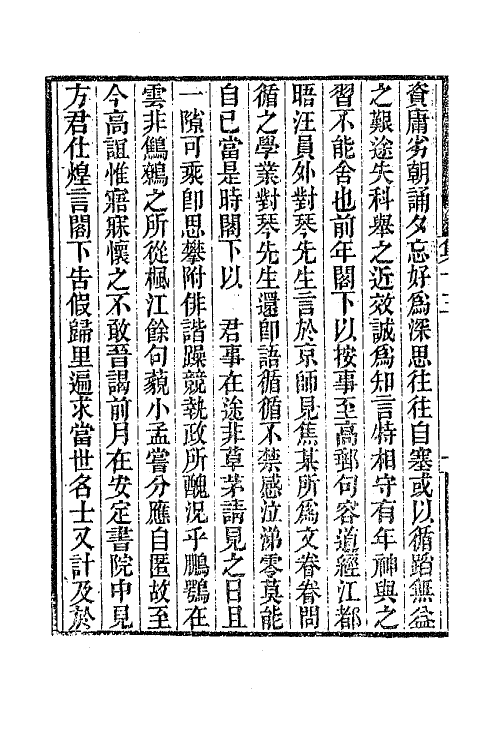 資庸劣朝誦夕忘好爲深思往往自塞或以循蹈無益
之艱途失科舉之近效誠爲知言特相守有年神與之
習不能舍也前年閣下以按事至高郵句容道經江都
晤汪員外對琴先生言於京師見焦某所爲文眷眷問
循之學業對琴先生還卽語循循不禁感泣涕零莫能
自已當是時閣下以　君事在途非草茅請見之日且
一隙可乘卽思攀附俳諧躁競執政所醜況乎鵬鶚在
雲非鷦鷯之所從楓江餘句藐小孟嘗分應自匿故至
今高誼惟寤寐懷之不敢吾謁前月在安定書院中見
方君仕煌言閣下告假歸里遍求當世名士又計及於